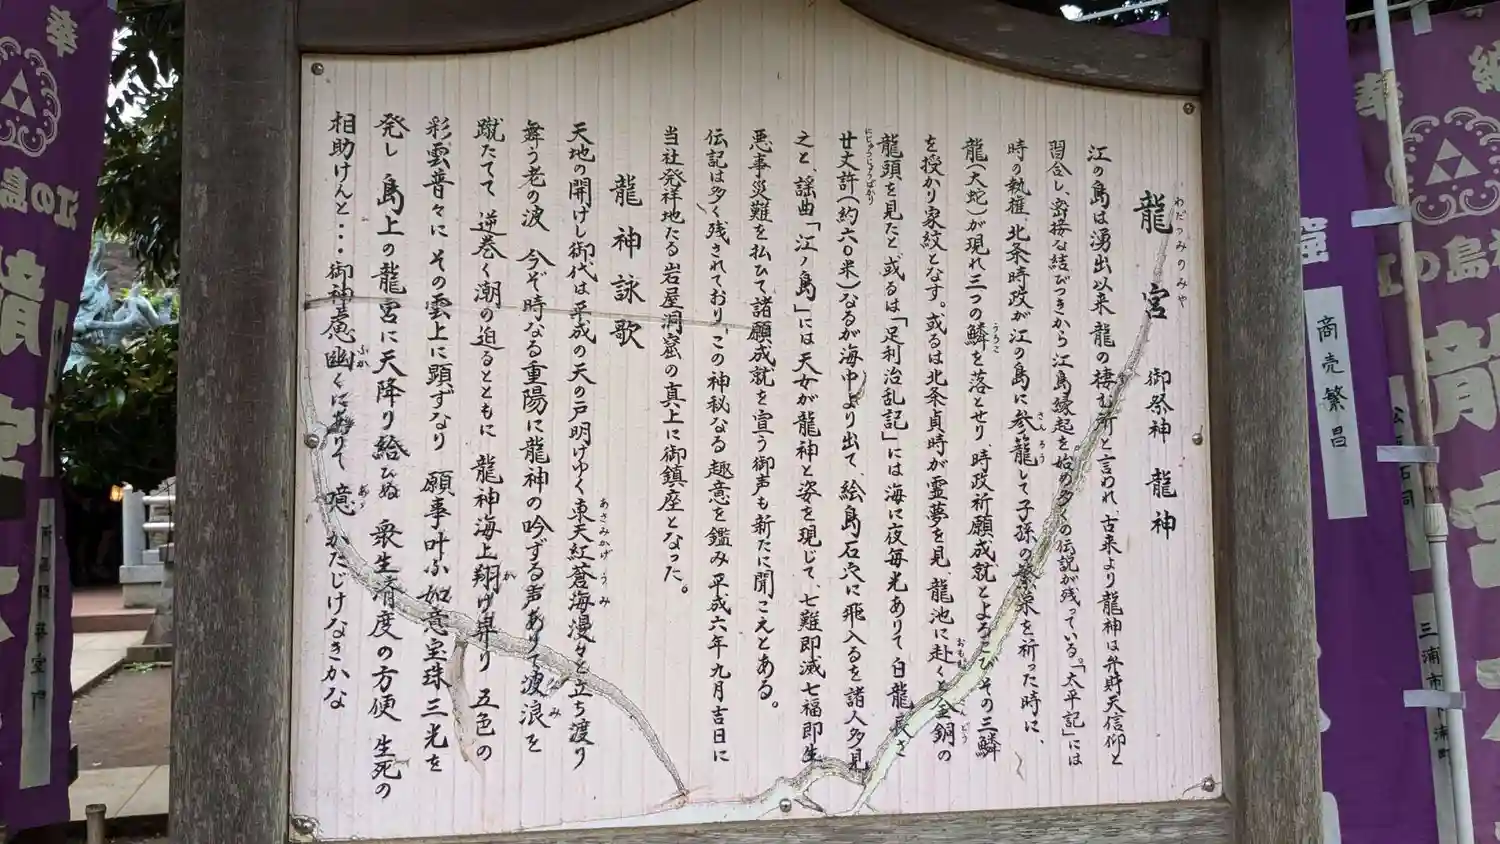 龍宮 御祭神 龍神
わだつみのみや
江の島は湧出以来龍の棲む所と言われ、古来より龍神は弁財天信仰と
習合し、密接な結びつきから江島縁起を始め多くの伝説が残っている。「太平記」には
時の執権、北条時政が江の島に参籠して子孫の繁栄を祈った時に、
さんろう
龍(大蛇)が現れ三つの鱗を落とせり、時政祈願成就とよろこびその三鱗
うろこ
を授かり家紋となす。或るは北条貞時が霊夢を見、龍池に赴くと金銅の
おもむ
龍頭を見たと、或るは「足利治乱記」には海に夜毎光ありて白龍長さ
廿丈許(約六〇米)なるが海中より出て、絵島石穴に飛入るを諸人多見
にじゅうじょうばかり
之と、謡曲「江ノ島」には天女が龍神と姿を現じて、七難即滅七福即生
悪事災難を払ひて諸願成就を宣う御声も新たに聞こえとある。
伝記は多く残されており、この神秘なる趣意を鑑み平成六年九月吉日に
当社発祥地たる岩屋洞窟の真上に御鎮座となった。
龍神詠歌
天地の開けし御代は平成の天の戸明けゆく東天紅蒼海漫々と立ち渡り
あさみかげ うみ
舞う老の波 今ぞ時なる重陽に龍神の吟ずる声ありて波浪を
なみ
蹴たてて 逆巻く潮の迫るとともに 龍神海上翔け昇り 五色の
か
彩雲普々に その雲上に顕ずなり 願事叶ふ如意宝珠三光を
発し 島上の龍宮に天降り給ひぬ 衆生済度の方便 生死の
相助けんと… 御神慮幽くにありて 噫 かたじけなきかな
ふか
あゝ
奉
江の島
龍宮
納
奉
江の島神
龍宮
商売繁昌
三浦市